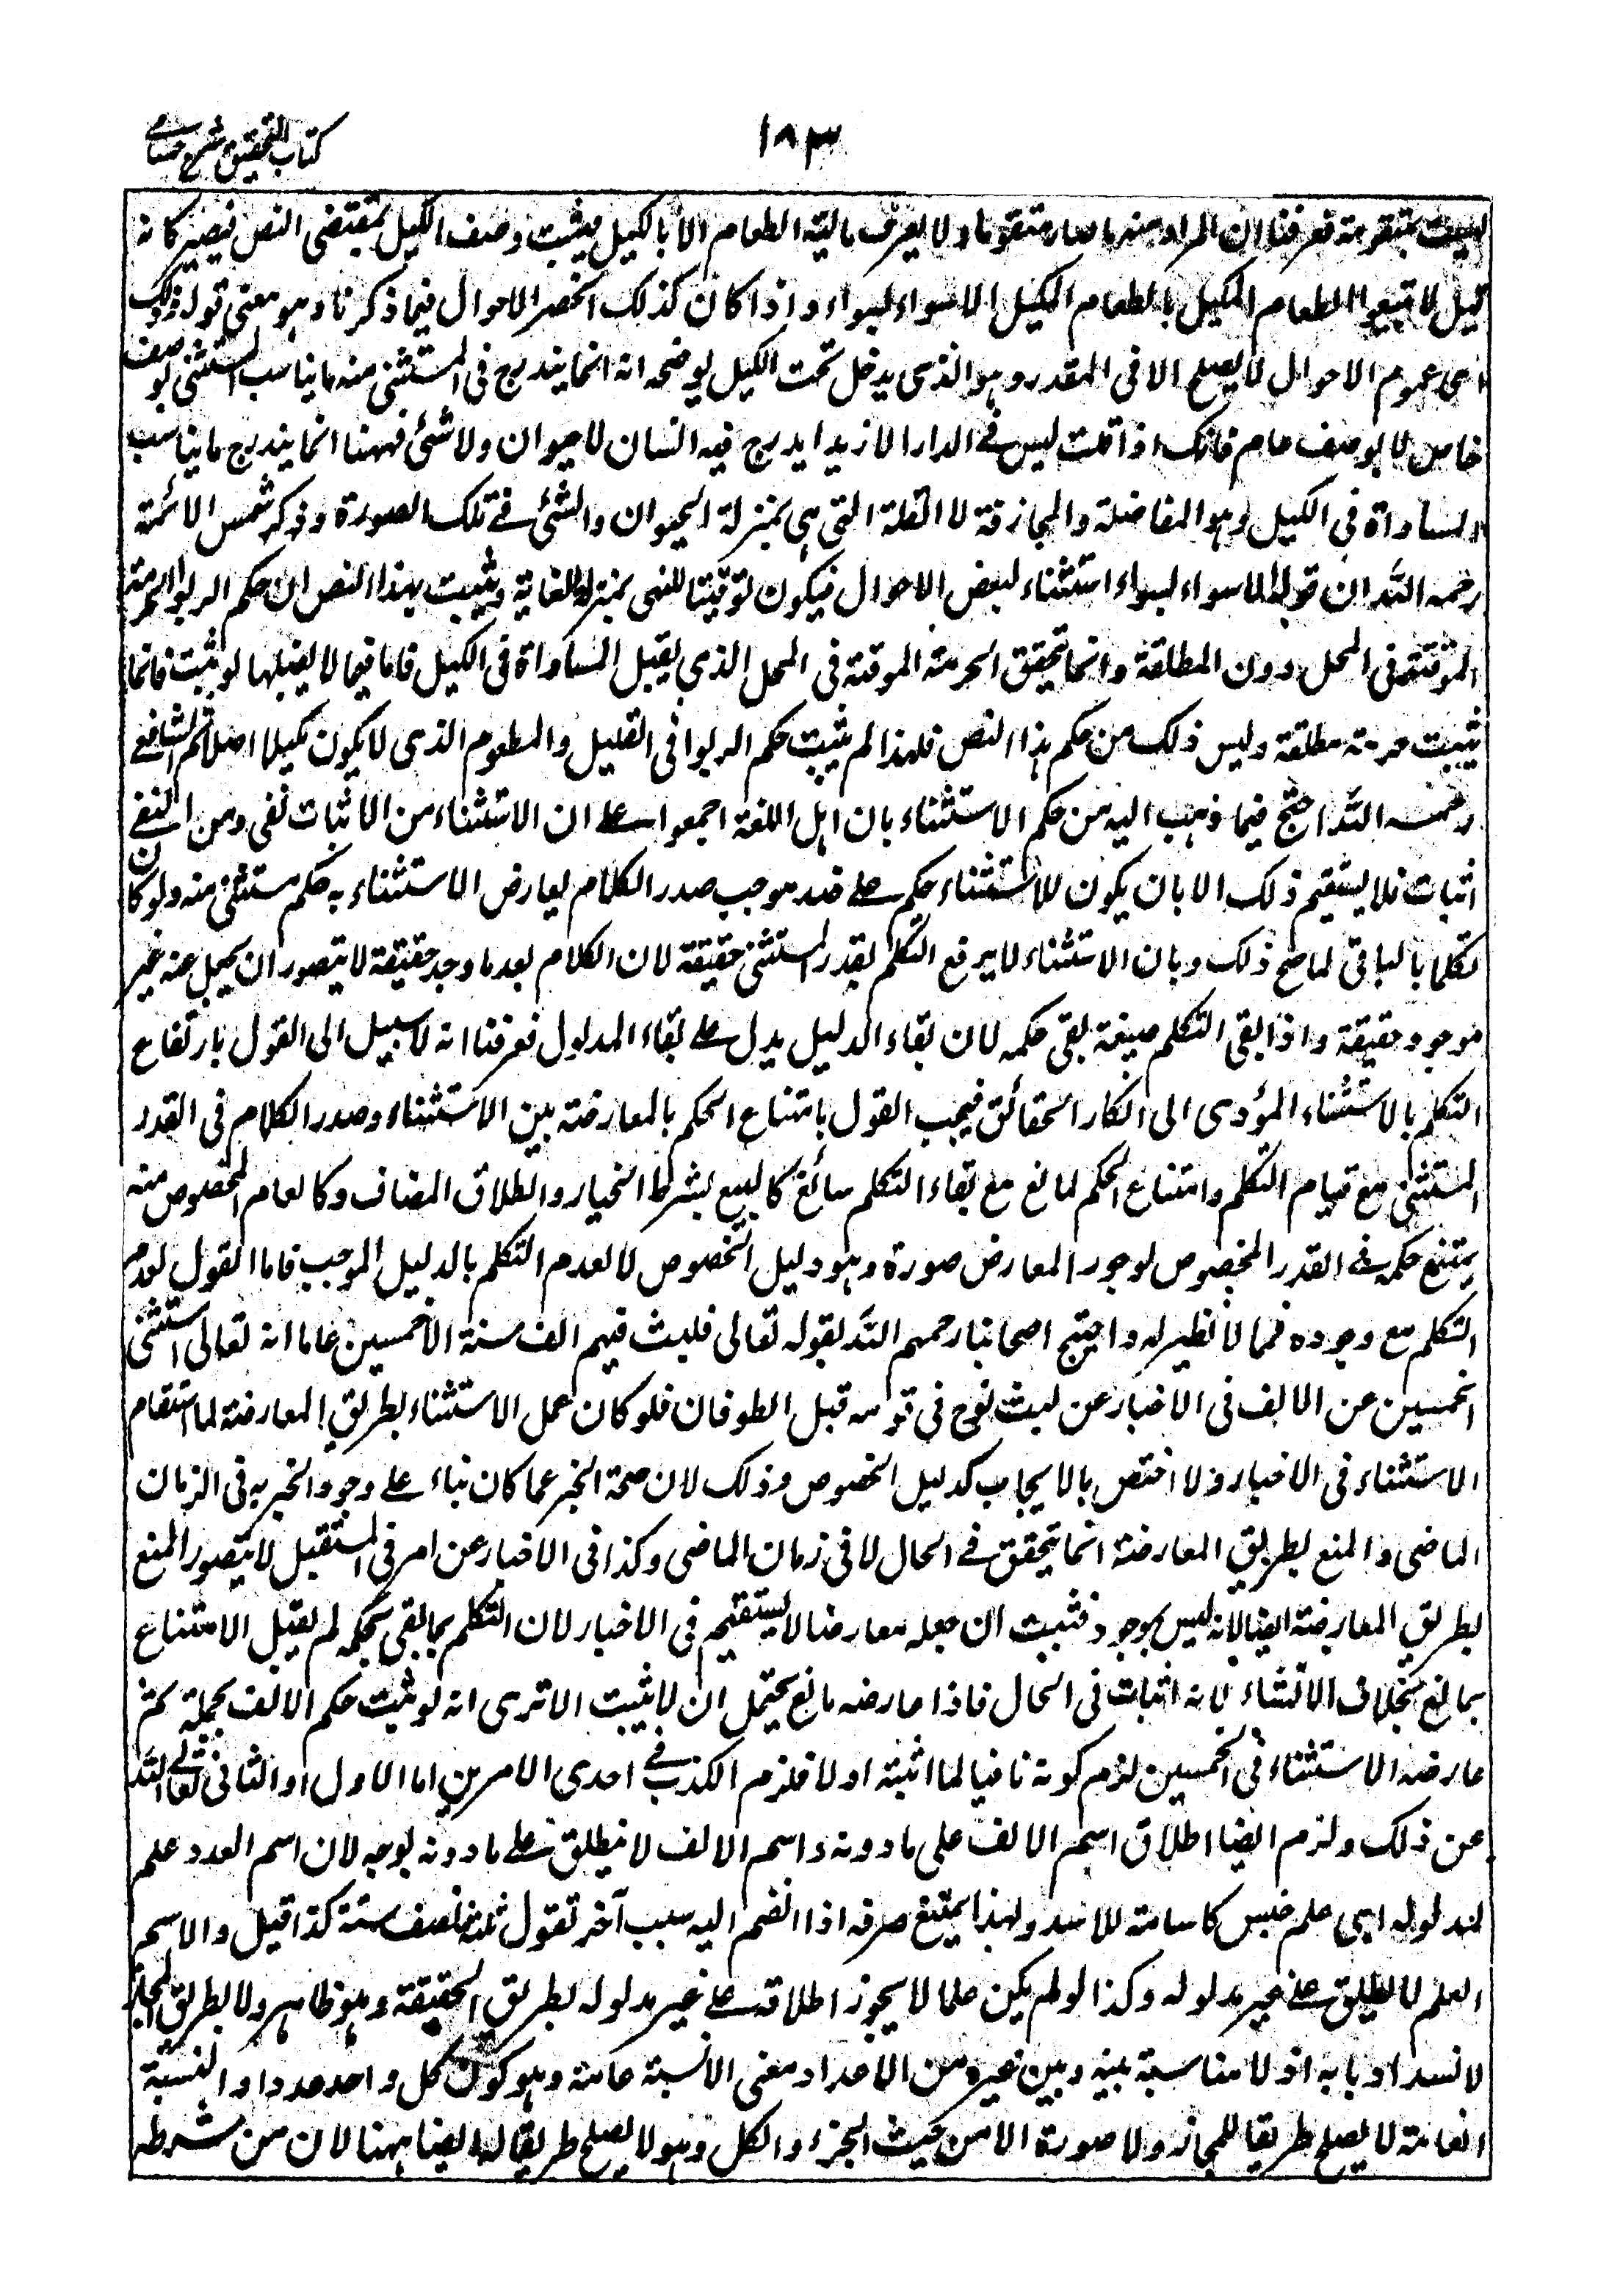 كتاب التحقيق شرح حسامى
١٨٣
ليست بمتقومة فعرفنا ان المراد منه ما صار متقوما ولا يعرف مالية الطعام الا بالكيل فيثبت وصف الكيل بمقتضى النص فيصير كانه
قيل لا تبيعوا الطعام المكيل بالطعام المكيل الا سواء بسواء واذا كان كذلك انحصر الاحوال فيما ذكرنا وهو معنى قوله وذلك
اى عموم الاحوال لا يصلح الا فى المقدر وهو الذى يدخل تحت الكيل يوضحه انه انما يندرج فى المستثنى منه ما يناسب المستثنى بوصف
خاص لا بوصف عام فانك اذا قلت ليس فى الدار الا زيد ايدرج فيه انسان لا حيوان ولا شئ فههنا انما يندرج ما يناسب
المساواة فى الكيل وهو المفاضلة والمجازفة لا القلة التى هى بمنزلة الحيوان والشئ فى تلك الصورة وذكر شمس الائمة
رحمه الله ان قوله الا سواء بسواء استثناء لبعض الاحوال فيكون توقيتا للنهى بمنزلة الغاية ويثبت بهذا النص ان حكم الربوا الحرمة
الموقتة فى المحل دون المطلقة وانما يتحقق الحرمة الموقتة فى المحل الذى يقبل المساواة فى الكيل فاما فيما لا يقبلها لو ثبت فانما
يثبت حرمة مطلقة وليس ذلك من حكم هذا النص فلهذا لم يثبت حكم الربوا فى القليل والمطعوم الذى لا يكون مكيلا اصلا ثم الشافعى
رحمه الله احتج فيما ذهب اليه من حكم الاستثناء بان اهل اللغة اجمعوا على ان الاستثناء من الاثبات نفى ومن النفى
اثبات فلا يستقيم ذلك الا بان يكون للاستثناء حكم على ضد موجب صدر الكلام يعارض الاستثناء به حكم مستثنى منه ولو كان
تكلما بالباقى لما صح ذلك وبان الاستثناء لا يرفع التكلم بقدر المستثنى حقيقة لان الكلام بعد ما وجد حقيقة لا يتصور ان يجعل عنه غير
موجود حقيقة واذا بقى التكلم صيغة بقى حكمه لان بقاء الدليل يدل على بقاء المدلول فعرفنا انه لا سبيل الى القول بارتفاع
التكلم بالاستثناء المؤدى الى انكار الحقائق فيجب القول بامتناع الحكم بالمعارضة بين الاستثناء وصدر الكلام فى القدر
المستثنى مع قيام التكلم وامتناع الحكم لمانع مع بقاء التكلم سائغ كالبيع بشرط الخيار والطلاق المضاف وكالعام المخصوص منه
يمتنع حكمه فى القدر المخصوص لوجود المعارض صورة وهو دليل الخصوص لا لعدم التكلم بالدليل الموجب فاما القول بعدم
التكلم مع وجوده فمما لا نظير له واحتج اصحابنا رحمهم الله بقوله تعالى فلبث فيهم الف سنة الا خمسين عاما انه تعالى استثنى
الخمسين عن الالف فى الاخبار عن لبث نوح فى قومه قبل الطوفان فلو كان عمل الاستثناء بطريق المعارضة لما استقام
الاستثناء فى الاخبار ولا اختص بالايجاب كدليل الخصوص وذلك لان صحة الخبر عما كان بناء على وجود المخبر به فى الزمان
الماضى والمنع بطريق المعارضة انما يتحقق فى الحال لا فى زمان الماضى وكذا فى الاخبار عن امر فى المستقبل لا يتصور المنع
بطريق المعارضة ايضا لانه ليس بموجود فثبت ان جعله معارضا لا يستقيم فى الاخبار لان التكلم بما بقى بحكمه لم يقبل الامتناع
بمانع بخلاف الانشاء لانه اثبات فى الحال فاذا عارضه مانع يحتمل ان لا يثبت الا ترى انه لو ثبت حكم الالف بجملته ثم
عارضه الاستثناء فى الخمسين لزم كونه نافيا لما اثبته اولا فلزم الكذب فى احدى الامرين اما الاول او الثانى تعالى الله
عن ذلك ولزم ايضا اطلاق اسم الالف على ما دونه واسم الالف لا ينطلق على ما دونه بوجه لان اسم العدد علم
لمدلوله اى علم جنس كاسامة للاسد ولهذا يمتنع صرفه اذا انضم اليه سبب آخر تقول ثلثة نصف ستة كذا قيل والاسم
العلم لا يطلق على غير مدلوله وكذا لو لم يكن علما لا يجوز اطلاقه على غير مدلوله بطريق الحقيقة وهو ظاهر ولا بطريق المجاز
لانسداد بابه اذ لا مناسبة بينه وبين غيره من الاعداد معنى الا نسبة عامة وهو كون كل واحد عددا والنسبة
العامة لا يصلح طريقا للمجاز ولا صورة الا من حيث الجزء والكل وهو لا يصلح طريقا له ايضا ههنا لان من شرطه